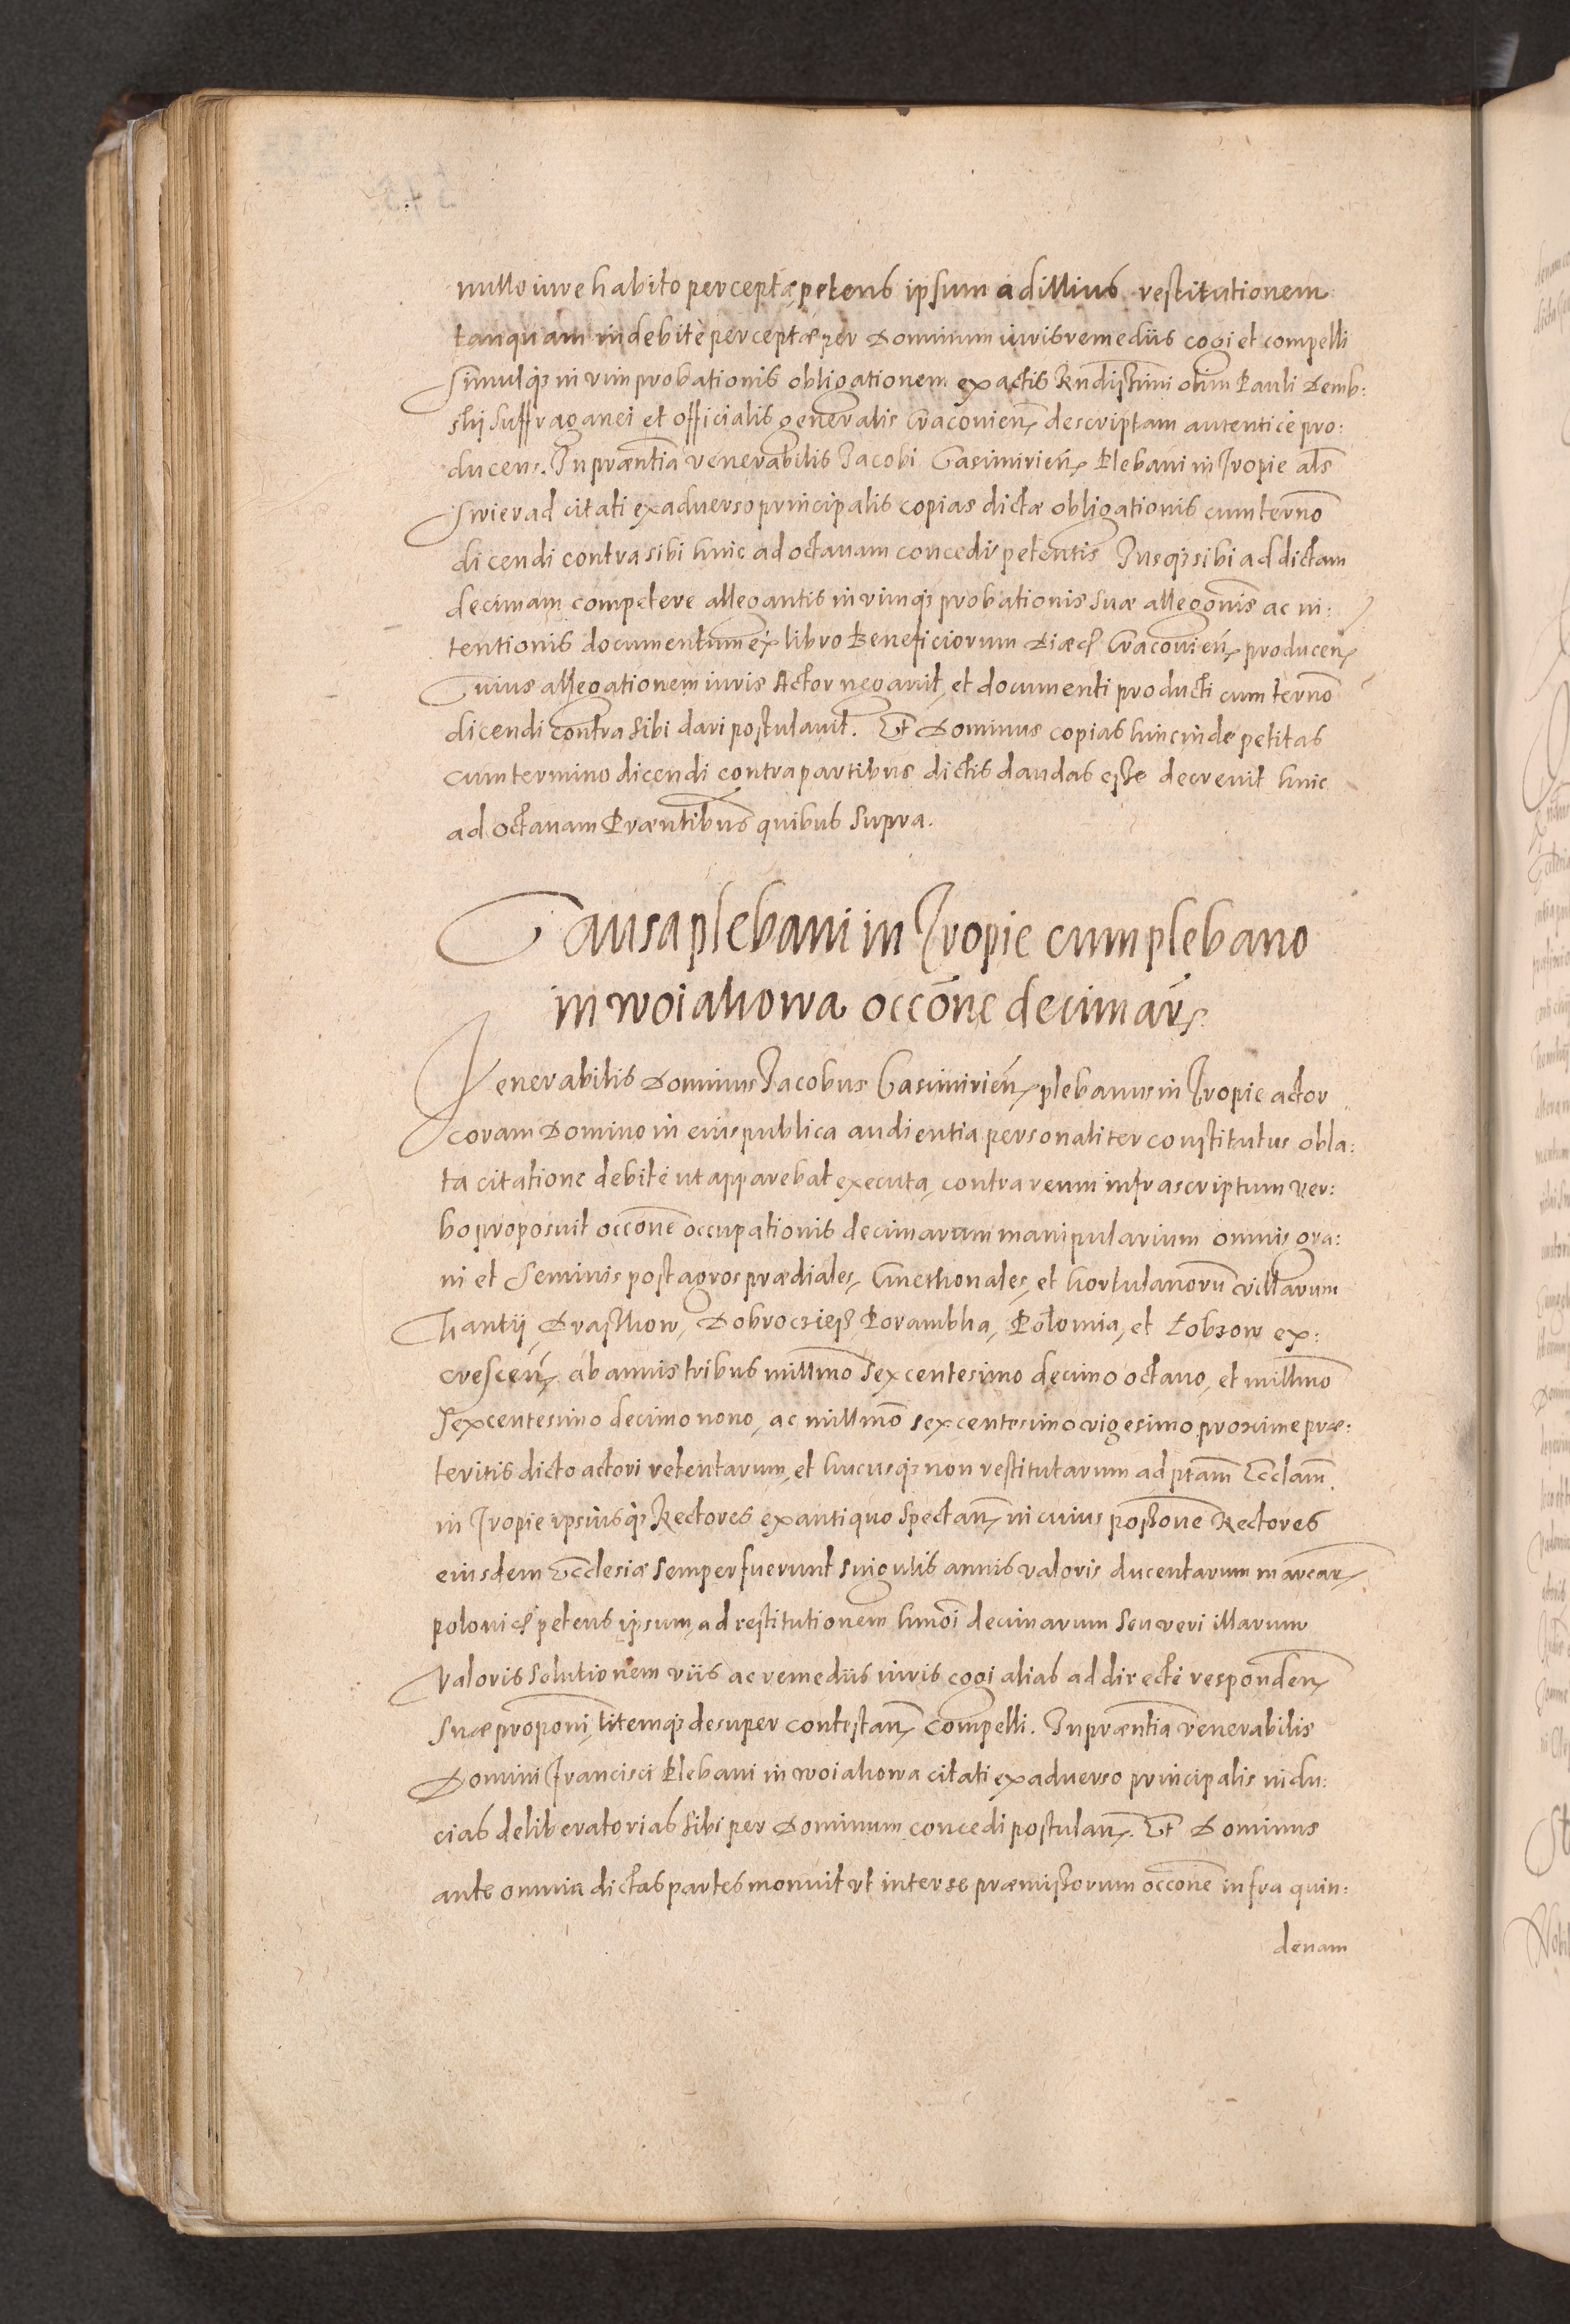 nullo iure habito perceptæ, petens ipsum ad illius restitutionem
tanquam indebitè perceptæ per Dominum iuris remediis cogi et compelli
Simulq; in vim probationis obligationem ex actis Rndissimi olim Pauli Demb:
ski Suffraganei et officialis generalis Cracovien descriptam autenticè pro:
ducens. In præntia venerabilis Jacobi Casimirien Plebani in Tropie als
Swierad citati ex adverso principalis copias dictæ obligationis cum termo
dicendi contra sibi hinc ad octavam concedi petentis Jusq; sibi ad dictam
decimam competere allegantis in vimq; probationis suæ allegonis ac in:
tentionis documentum ex libro Beneficiorum Diæc Cracovien producen
Cuius allegationem iuris Actor negavit, et documenti producti cum termo
dicendi contra sibi dari postulavit. Et Dominus copias hincinde petitas
cum termino dicendi contra partibus dictis dandas esse decrevit hinc
ad octavam Præntibus quibus supra.
Causa plebani in Tropie cum plebano
in Woiakowa occone decimar
Venerabilis Dominus Jacobus Casimirien plebanus in Tropie actor
coram Domino in eius publica audientia personaliter constitutus obla:
ta citatione debitè ut apparebat executa, contra reum infrascriptum ver:
bo proposuit occone occupationis decimarum manipularium omnis gra:
ni et Seminis post agros prædiales, Cmethonales, et hortulanoru villarum
Thantij Drasthow, Dobrocziesz Porambka, Polomia, et Lobzow ex:
crescen, ab annis tribus millmo Sexcentesimo decimo octavo, et millmo
Sexcentesimo decimo nono, ac millmo sexcentesimo vigesimo proxime præ:
teritis dicto actori retentarum, et hucusq; non restitutarum ad ptam Ecclam
in Tropie ipsiusq; Rectores ex antiquo Spectan, in cuius possone Rectores
eiusdem Ecclesiæ semper fuerunt singulis annis valoris ducentarum marcar
polonic petens ipsum, ad restitutionem hmoi decimarum seu veri illarum
valoris solutionem viis ac remediis iuris cogi alias ad directè responden
suæ proponi, litemq; desuper contestan compelli. In præntia venerabilis
Domini Francisci Plebani in Woiakowa citati ex adverso principalis indu:
cias deliberatorias sibi per Dominum concedi postulan. Et Dominus
ante omnia dictas partes monuit ut inter se præmissorum occone infra quin:
denam